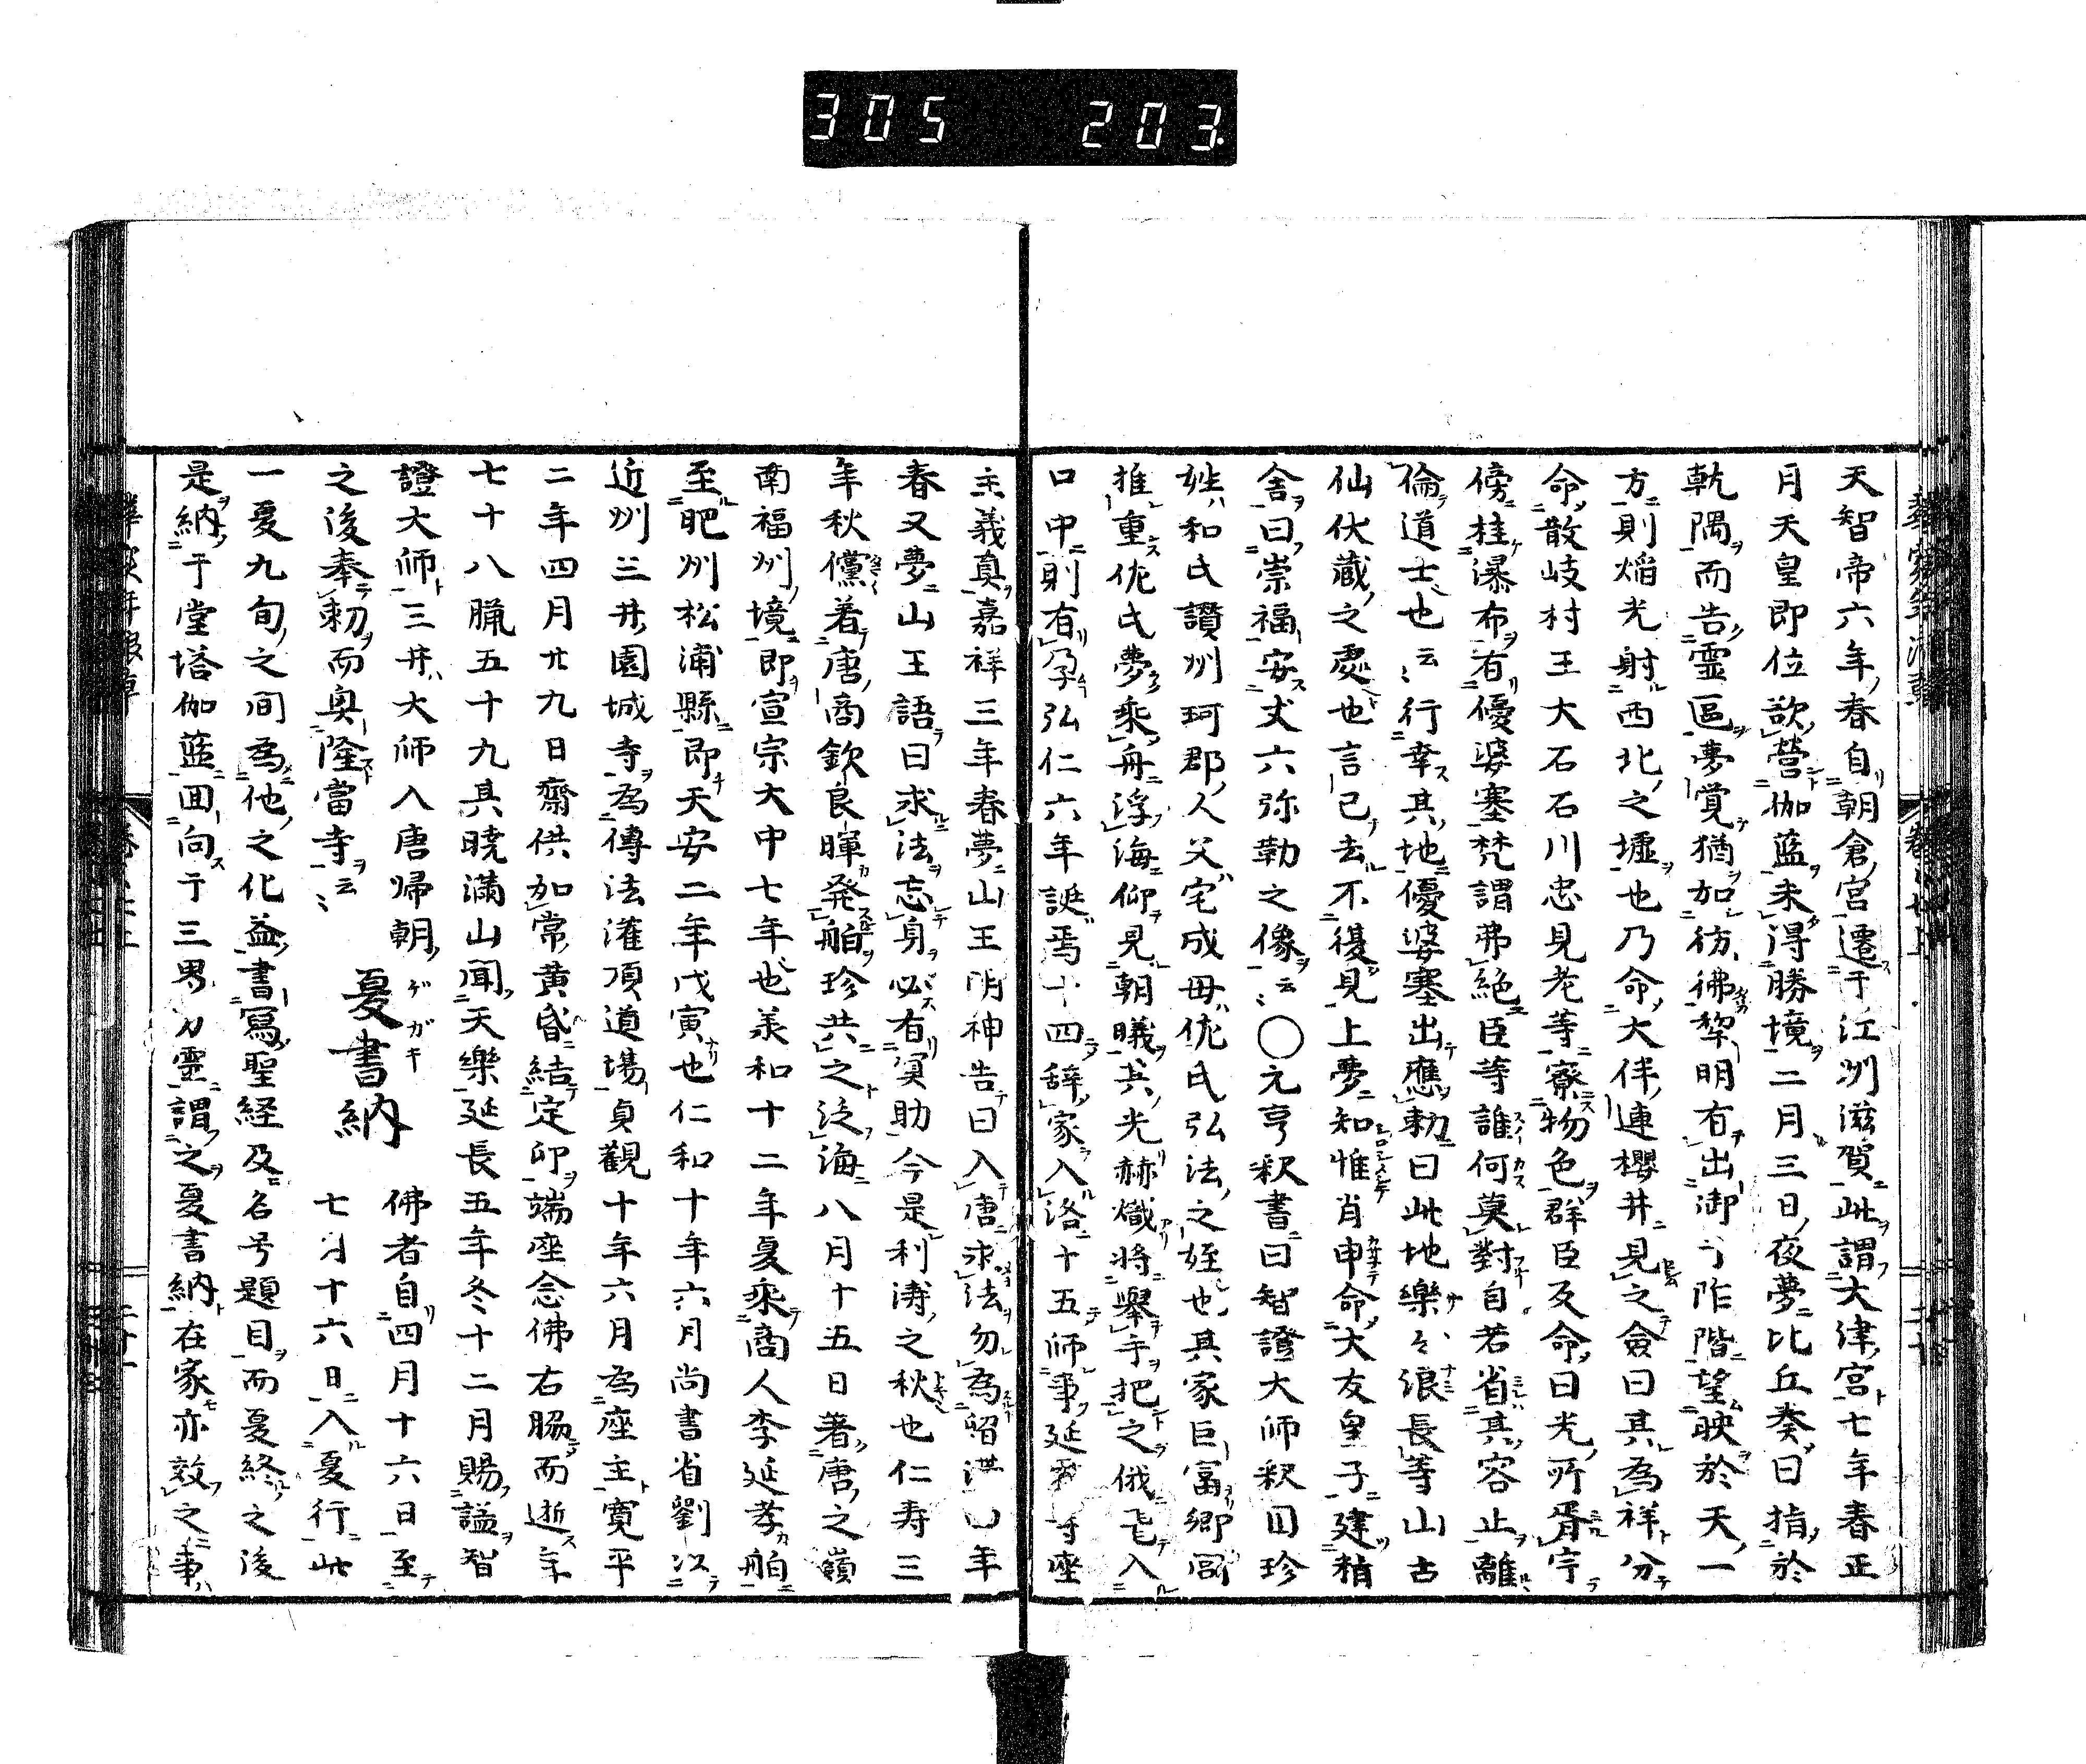 305 203
天智帝六年春自朝倉宮遷于江州滋賀此謂大津宮七年春正
月天皇即位欲營伽藍未得勝境二月三日夜夢比丘奏曰指於
乾隅而告靈區夢覚猶加彷彿犂明有出御于阼階望映於天一
方則焔光射西北之墟也乃命大伴連櫻井見之僉曰其為祥分
命散岐村王大石石川忠見老等寮物色群臣反命曰光所胥宇
傍桂瀑布有優婆塞梵謂弗絶臣等誰何莫對自若省其容止離
倫道士也云〻行幸其地優婆塞出應勅曰此地樂〻浪長等山古
仙伏蔵之處也言已去不復見上夢知惟肖申命大友皇子建精
舍曰崇福安丈六弥勒之像云〻〇元亨釈書曰智證大師釈円珍
姓和氏讃州珂郡人父宅成母佐氏弘法之姪也其家巨富郷閭
推重佐氏夢乘舟浮海仰見朝曦其光赫熾将舉手把之俄飛入
口中則有孕弘仁六年誕焉十四辞家入洛十五師事延暦寺座
主義真嘉祥三年春夢山王明神告曰入唐求法勿為留滞山年
春又夢山王語曰求法忘身必有冥助今是利済之秋也仁寿三
年秋儻着唐商欽良暉発舶珍共之泛海八月十五日著唐之嶺
南福州境即宣宗大中七年也羕和十二年夏乘商人李延孝舶
至肥州松浦縣即天安二年戊寅也仁和十年六月尚書省劉以
近州三井園城寺為傳法灌頂道場貞觀十年六月為座主寛平
二年四月廿九日齋供加常黄昏結定印端座念佛右脇而逝年
七十八臘五十九其暁滿山聞天樂延長五年冬十二月賜謚智
證大師三井大師入唐帰朝
之後奉勅而奥隆當寺云〻
夏書納
ゲガキ
佛者自四月十六日至
七月十六日入夏行此
一夏九旬之間為他之化益書寫聖経及名号題目而夏終之後
是納于堂塔伽藍囬向于三界万靈謂之夏書納在家亦效之事